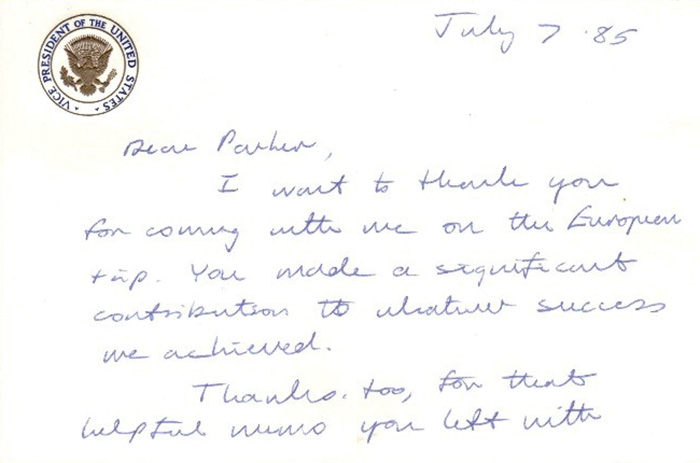 VICE PRESIDENT OF THE UNITED STATES
July 7 '85
Dear Parker,
I want to thank you
for coming with me on the European
trip. You made a significant
contribution to whatever success
we achieved.
Thanks, too, for that
helpful memo you left with